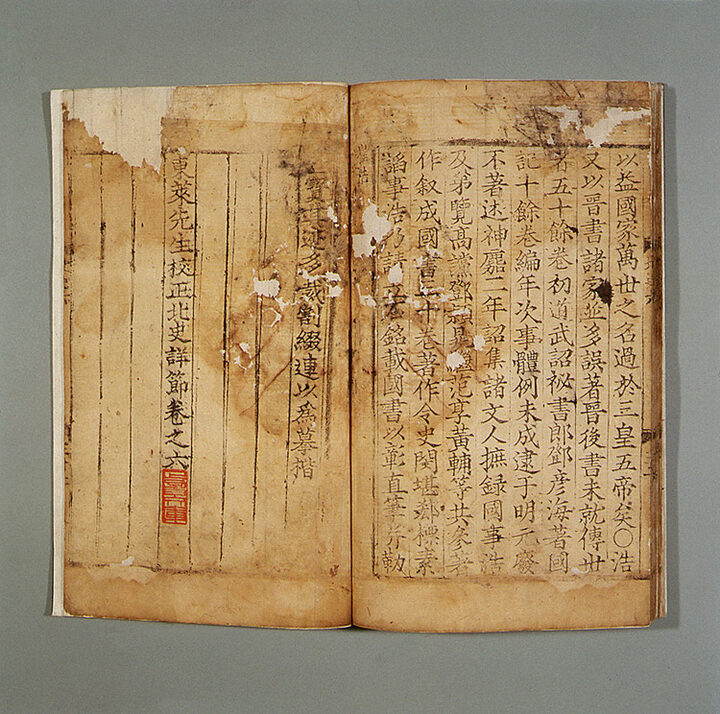 以益國家萬世之名過於三皇五帝矣〇浩
又以晉書諸家並多誤著晉後書未就傳世
者五十餘卷初道武詔祕書郎鄧彦海著國
記十餘卷編年次事體例未成逮于明元廢
不著述神䴥二年詔集諸文人摭録國事浩
及弟覽高讜鄧穎晁繼范亨黃輔等共參著
作叙成國書三十卷著作令史閔堪郄標素
諂事浩乃請石銘載國書以彰直筆并勒
寶其迹多裁割綴連以爲摹楷
東萊先生校正北史詳節卷之六